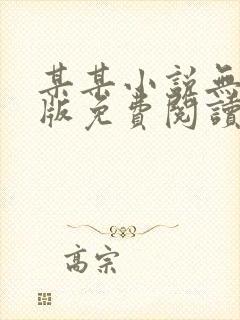 某某小説無
版免費閱讀
高宗